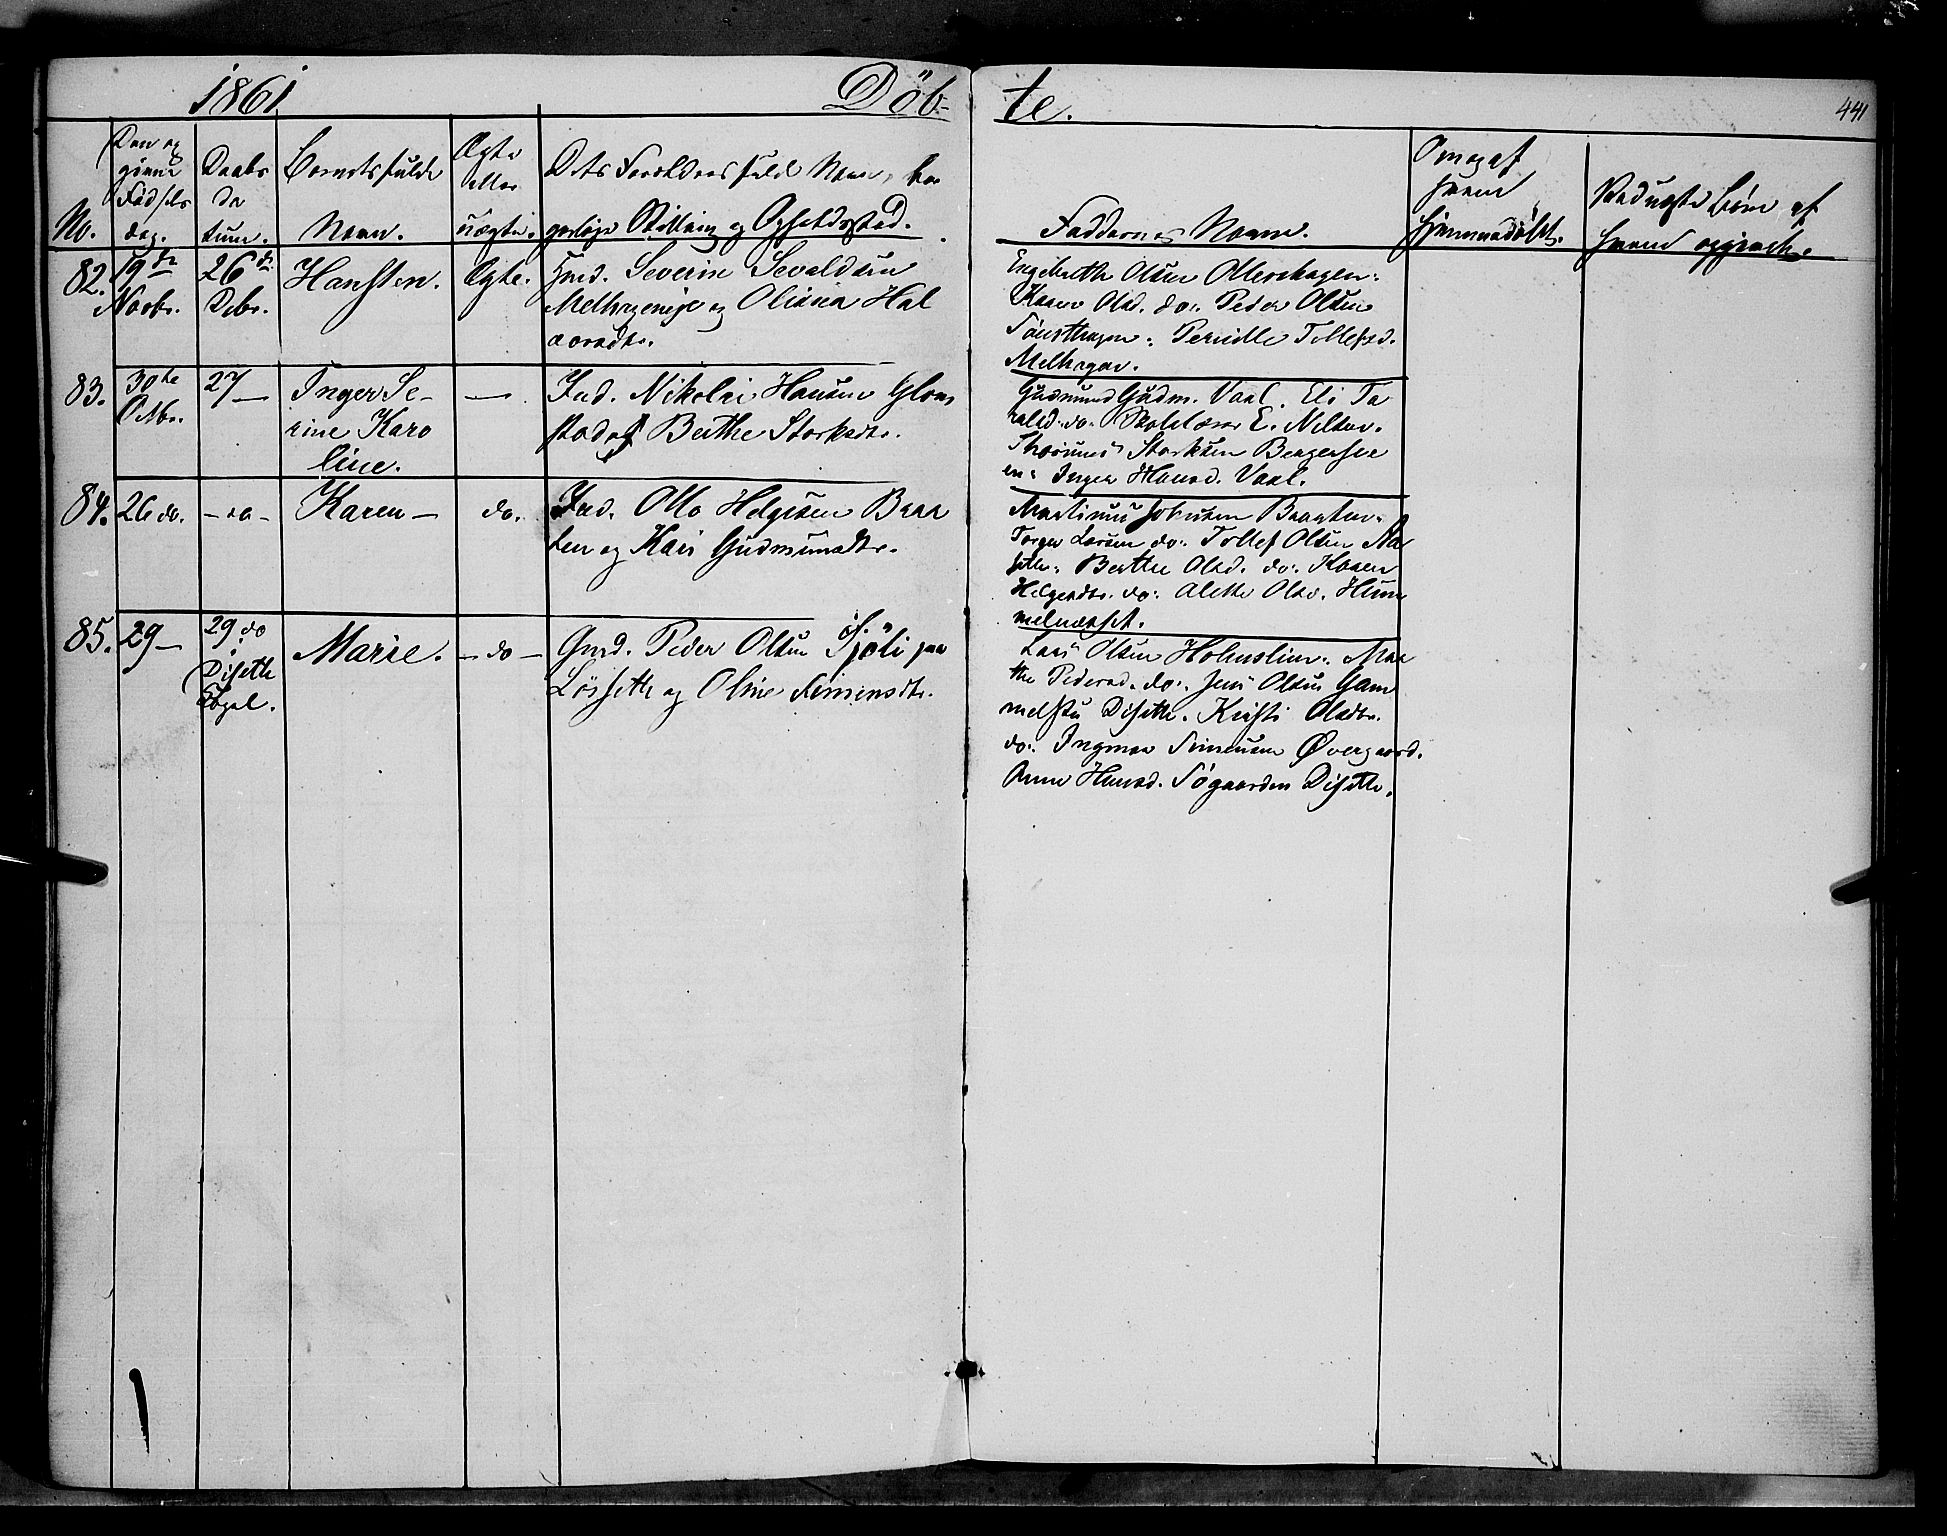 1861 Döb- te. 441
No.
Den og
giene
Fødsels
dag.
Daabs
da
tum.
Barnets fulde
Navn.
Ægte
eller
uægte.
Dets Forældres fulde Navn, bor
gerlige Stilling og Opholdssted.
Faddernes Navne.
Om og af
hvem
hjemmedøbt.
Vaduægte Børn af
hvem opgivet.
82.
19de
Novbr.
26de
Debr.
Hansten.
Ægte.
Gmd. Severin Sevaldsen
Melhageneje og Oliana Hal
vorsdtr.
Engebreth Olsen Ollershagen.
Karen Olsd. do. Peder Olsen
Tønsthagen. Pernille Tollefsd.
Melhagen.
83.
30te
Octbr.
27 —
Inger Se-
rine Karo
line.
—
Ind. Nikolai Hansen Glom
stad og Berthe Storksdtr.
Gudmund Gudm. Vaal. Eli Ta
ralsd. do. Skolelærer E. Nilsen.
Thorines Storksen Bergersee
en. Inger Hansd. Vaal.
84.
26 do.
- do -
Karen —
do.
Ind. Otto Helgesen Braa
ten og Kari Gudmundsdtr.
Martinus Johnsen Braaten.
Torger Larsen do. Tollef Olsen Aa
sethe. Berthe Olsd. do. Karen
Helgesdtr. do. Alette Olsd. Hum
melnæsset.
85.
29 —
29 do
i
Disethe
Capel.
Marie.
- do -
Gmd. Peder Olsen Sjöli paa
Løssethe og Oline Simensdtr.
Lars Olsen Holmslien. Mar
the Pedersd. do. Jens Olsen Gam
melstu Disethe. Kirsti Olsdtr.
do. Ingmar Simensen Øvergaard.
Anne Hansd. Søgaarden Disethe.